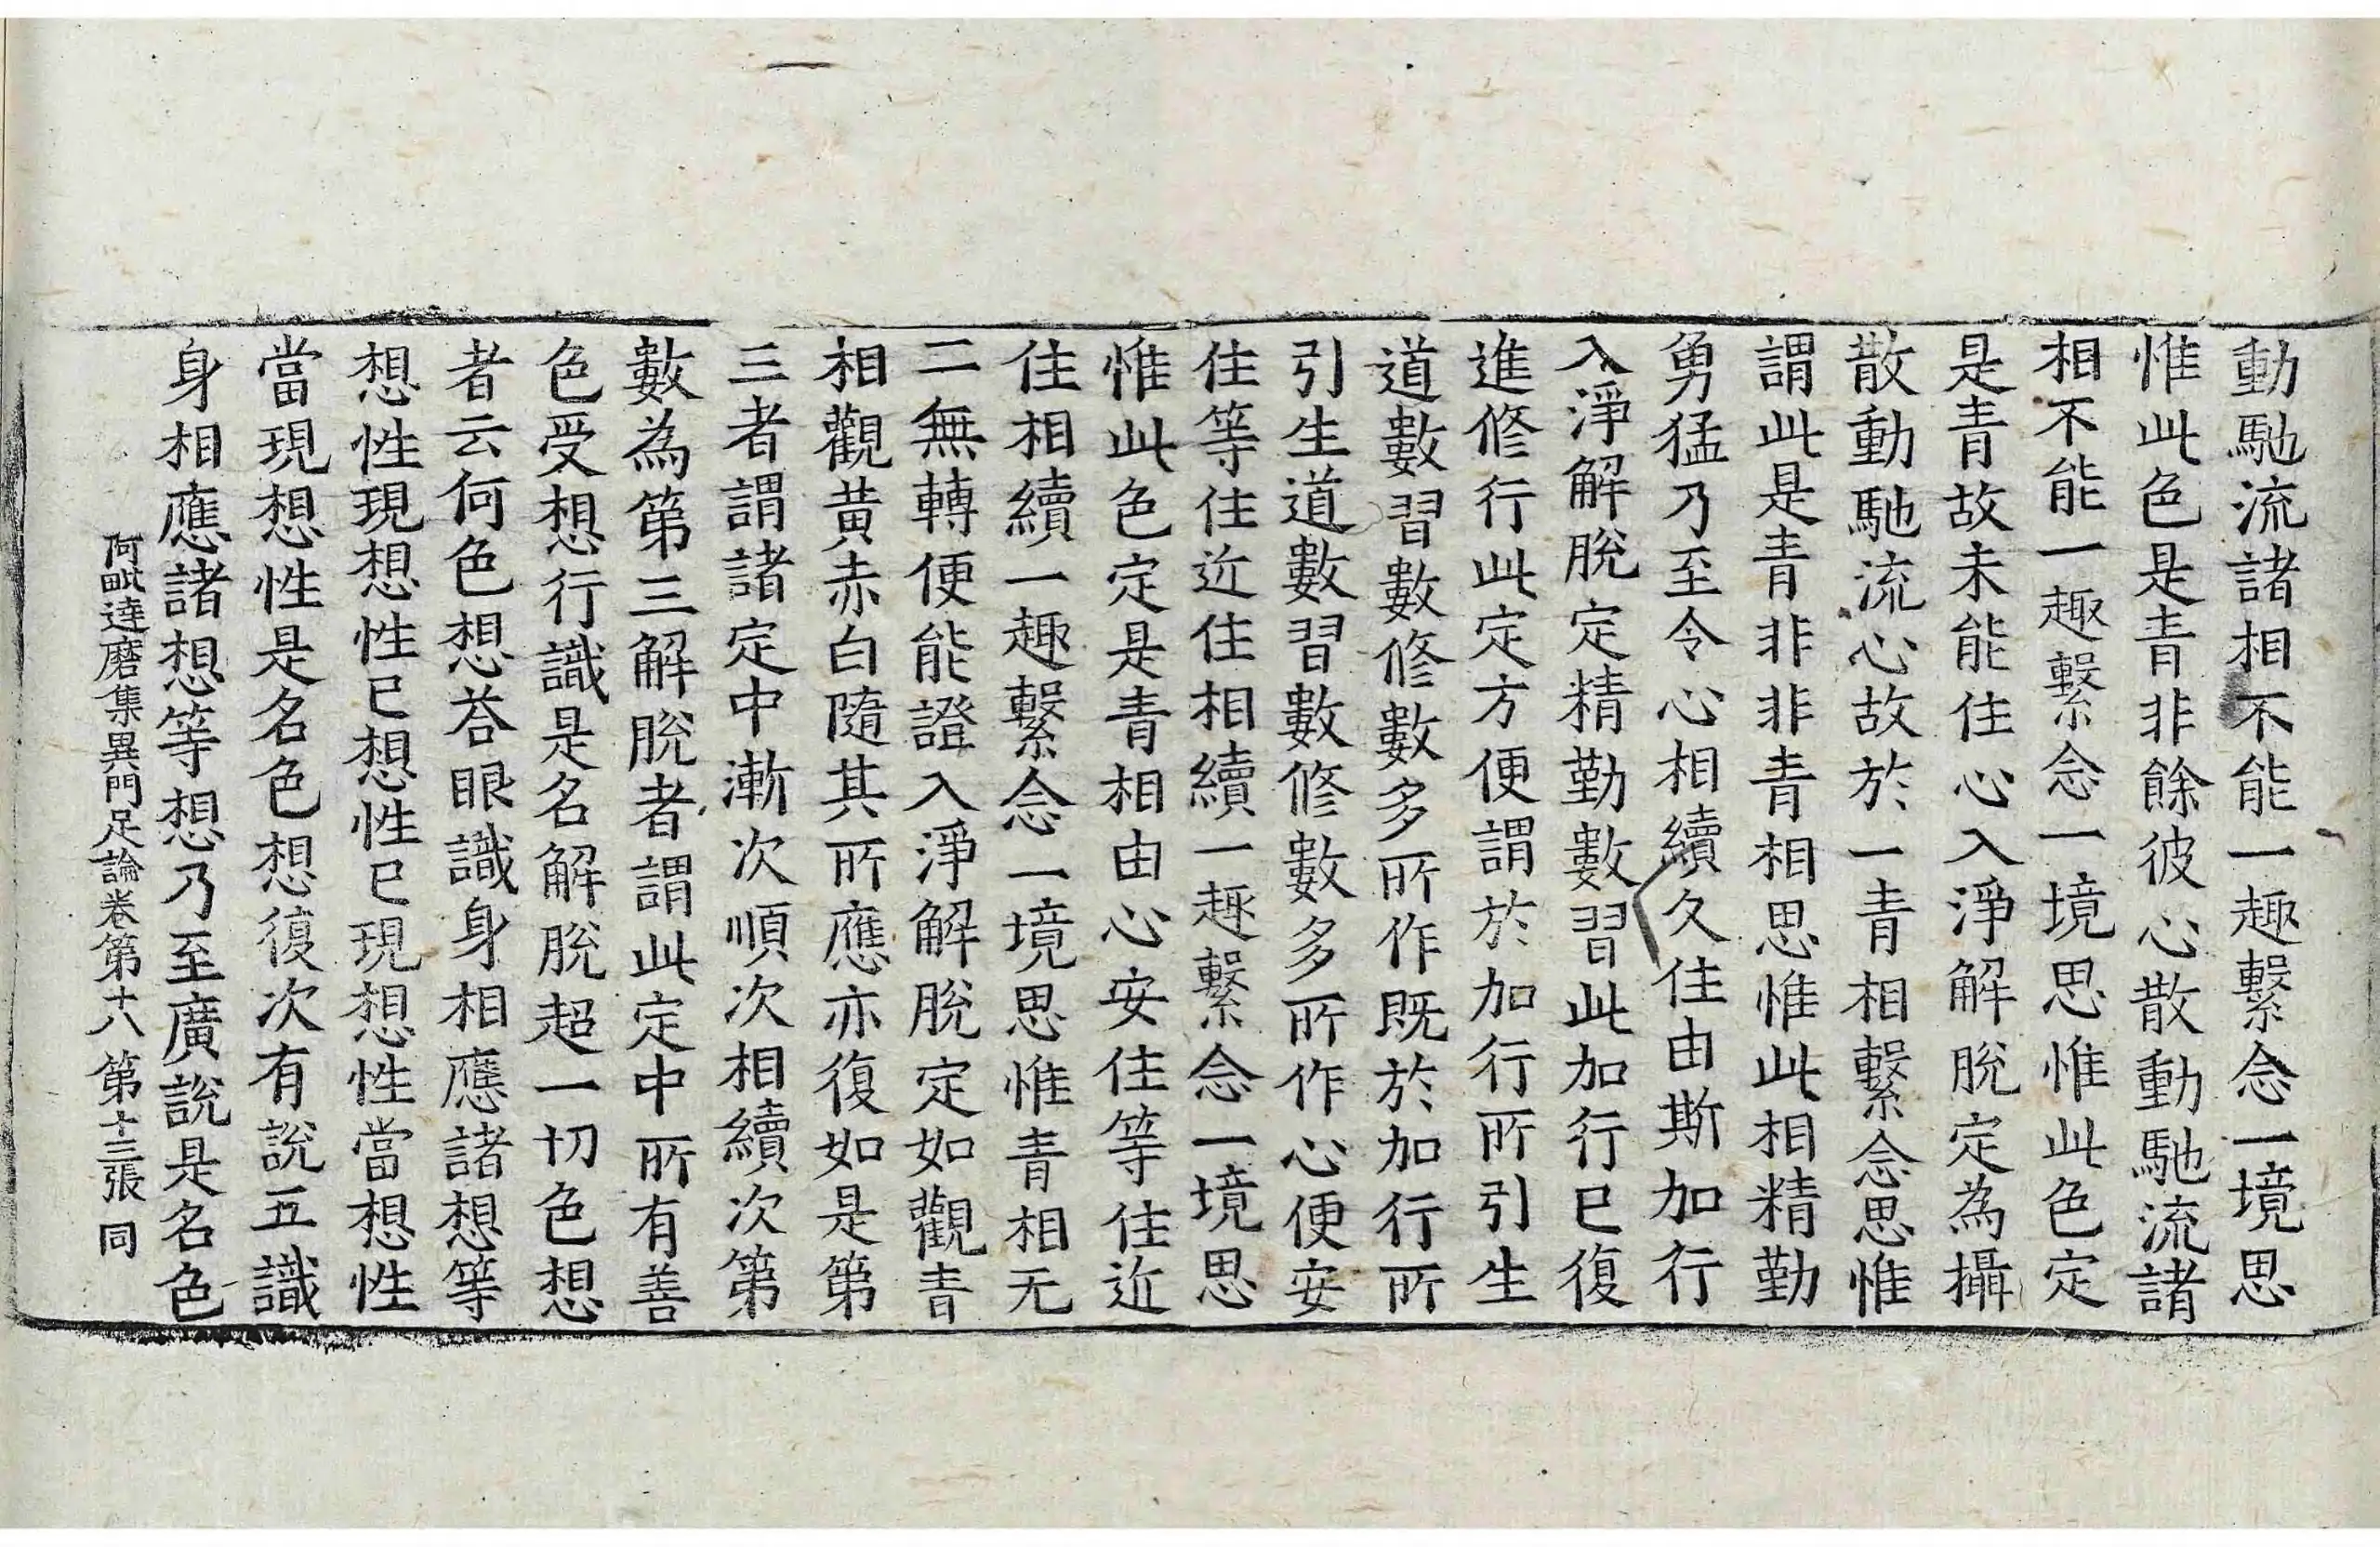 動馳流諸相不能一趣繫念一境思
惟此色是青非餘彼心散動馳流諸
相不能一趣繫念一境思惟此色定
是青故未能住心入淨解脫定為攝
散動馳流心故於一青相繫念思惟
謂此是青非非青相思惟此相精勤
勇猛乃至令心相續久住由斯加行
入淨解脫定精勤數習此加行已復
進修行此定方便謂於加行所引生
道數習數修數多所作既於加行所
引生道數習數修數多所作心便安
住等住近住相續一趣繫念一境思
惟此色定是青相由心安住等住近
住相續一趣繫念一境思惟青相无
二無轉便能證入淨解脫定如觀青
相觀黃赤白隨其所應亦復如是第
三者謂諸定中漸次順次相續次第
數為第三解脫者謂此定中所有善
色受想行識是名解脫超一切色想
者云何色想荅眼識身相應諸想等
想性現想性已想性已現想性當想性
當現想性是名色想復次有說五識
身相應諸想等想乃至廣說是名色
阿毗達磨集異門足論卷第十八 第十三張 同